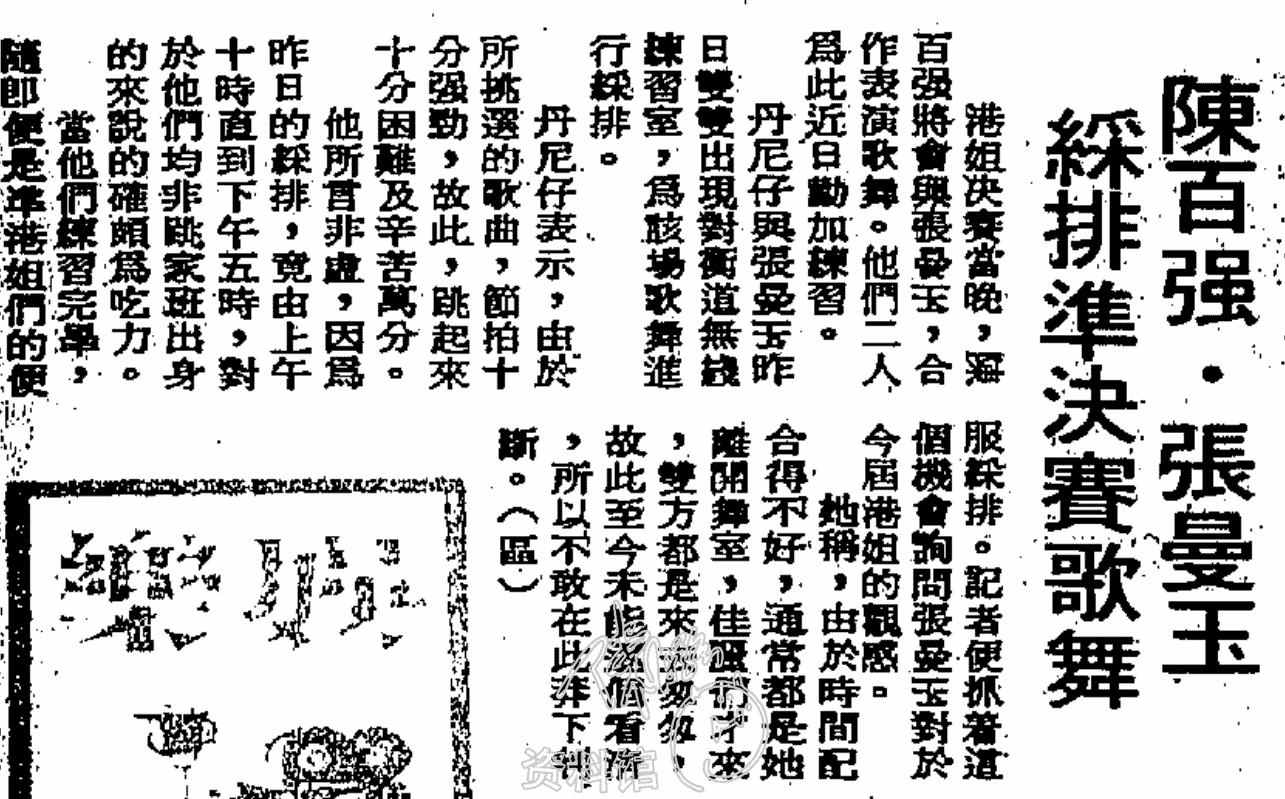 陳百强·張曼玉
綵排準決賽歌舞
港姐决賽當晚，
百强將會與張曼玉，合
作表演歌舞。他們二人
爲此近日勤加練習。
丹尼仔與張曼玉昨
日雙雙出現對衡道無綫
練習室，爲該場歌舞進
行綵排。
丹尼仔表示，由於
所挑選的歌曲，節拍十
分强勁，故此，跳起來
十分困難及辛苦萬分。
他所言非虛，因爲
昨日的綵排，竟由上午
十時直到下午五時，對
於他們均非跳家班出身
的來說的確頗爲吃力。
當他們練習完畢，
隨卽便是準港姐們的便
服綵排。記者便抓着這
個機會詢問張曼玉對於
今屆港姐的觀感。
她稱，由於時間配
合得不好，通常都是她
離開舞室，佳麗們才來
，雙方都是來匆匆，
故此至今未能淸看所
，所以不敢在此弄下
斷。（區）
资料馆